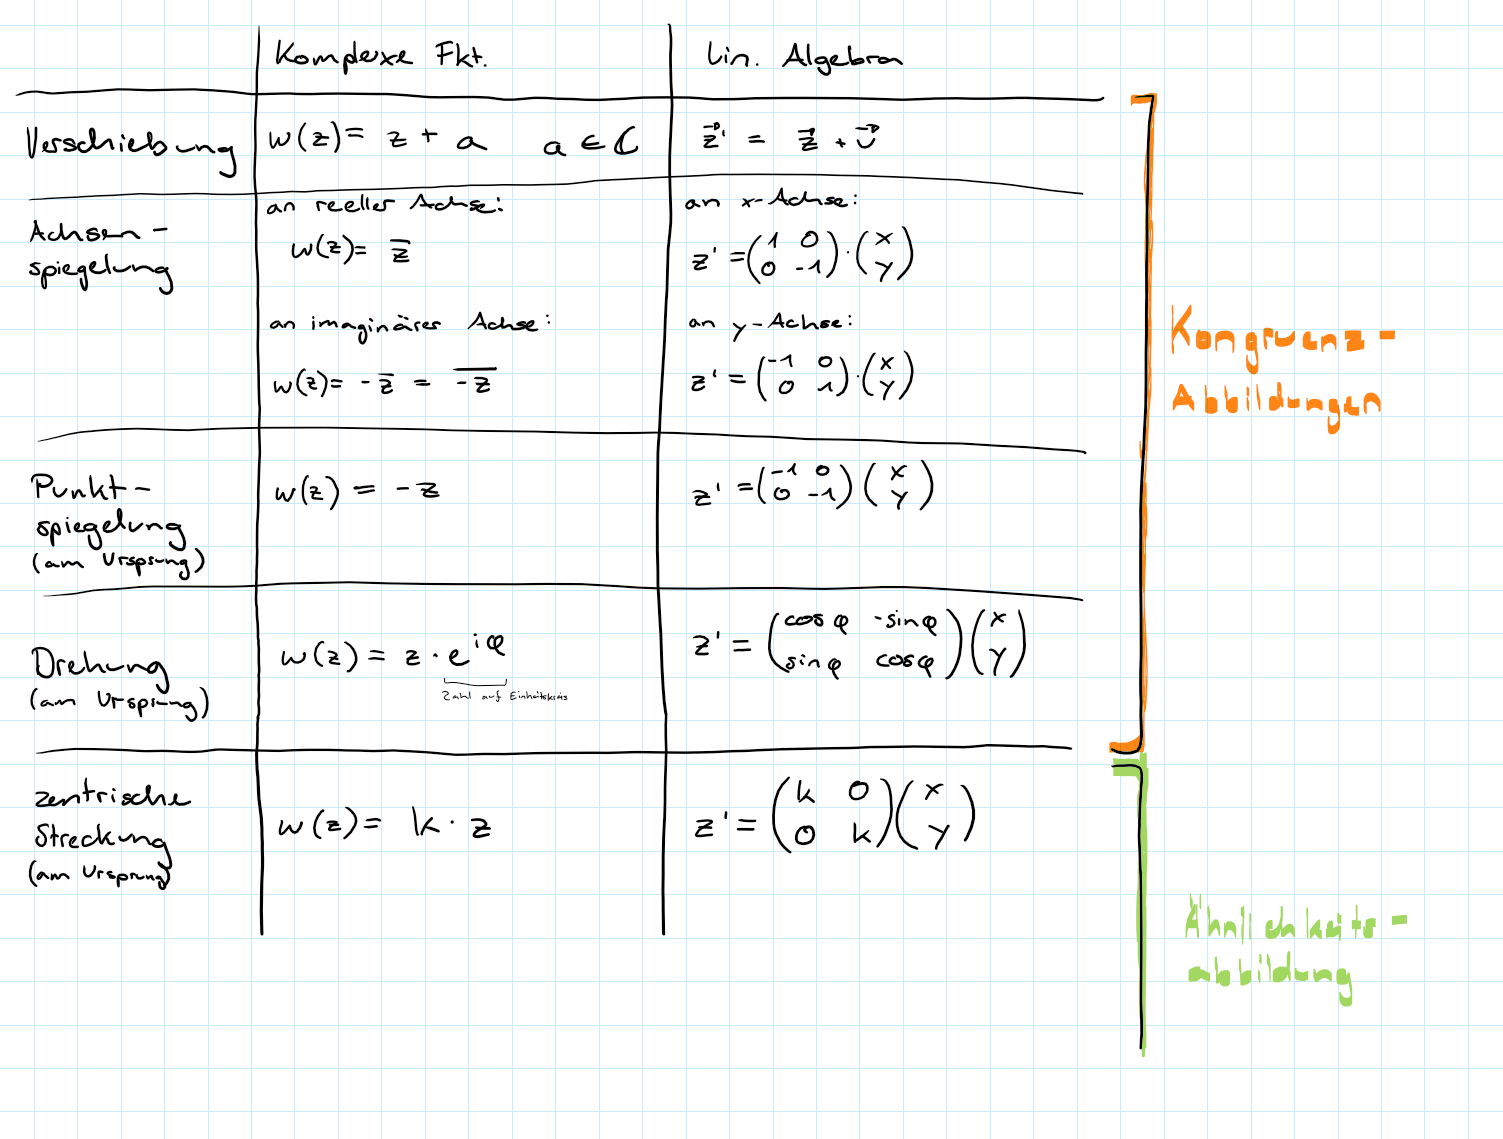 Komplexe Fkt. Lin. Algebra
Verschiebung w(z) = z + a a ∈ ℂ z⃗' = z⃗ + v⃗
Achsen-
spiegelung
an reeller Achse:
w(z) = z̅
an imaginärer Achse:
w(z) = -z̅ = \overline{-z}
an x-Achse:
z' = (1 0; 0 -1) · (x; y)
an y-Achse:
z' = (-1 0; 0 1) · (x; y)
Punkt-
spiegelung
(am Ursprung)
w(z) = -z
z' = (-1 0; 0 -1) (x; y)
Drehung
(am Ursprung)
w(z) = z · e^{iφ}
Zahl auf Einheitskreis
z' = (cos φ -sin φ; sin φ cos φ) (x; y)
zentrische
Streckung
(am Ursprung)
w(z) = k · z
z' = (k 0; 0 k) (x; y)
Kongruenz-
Abbildungen
Ähnlichkeits-
abbildung